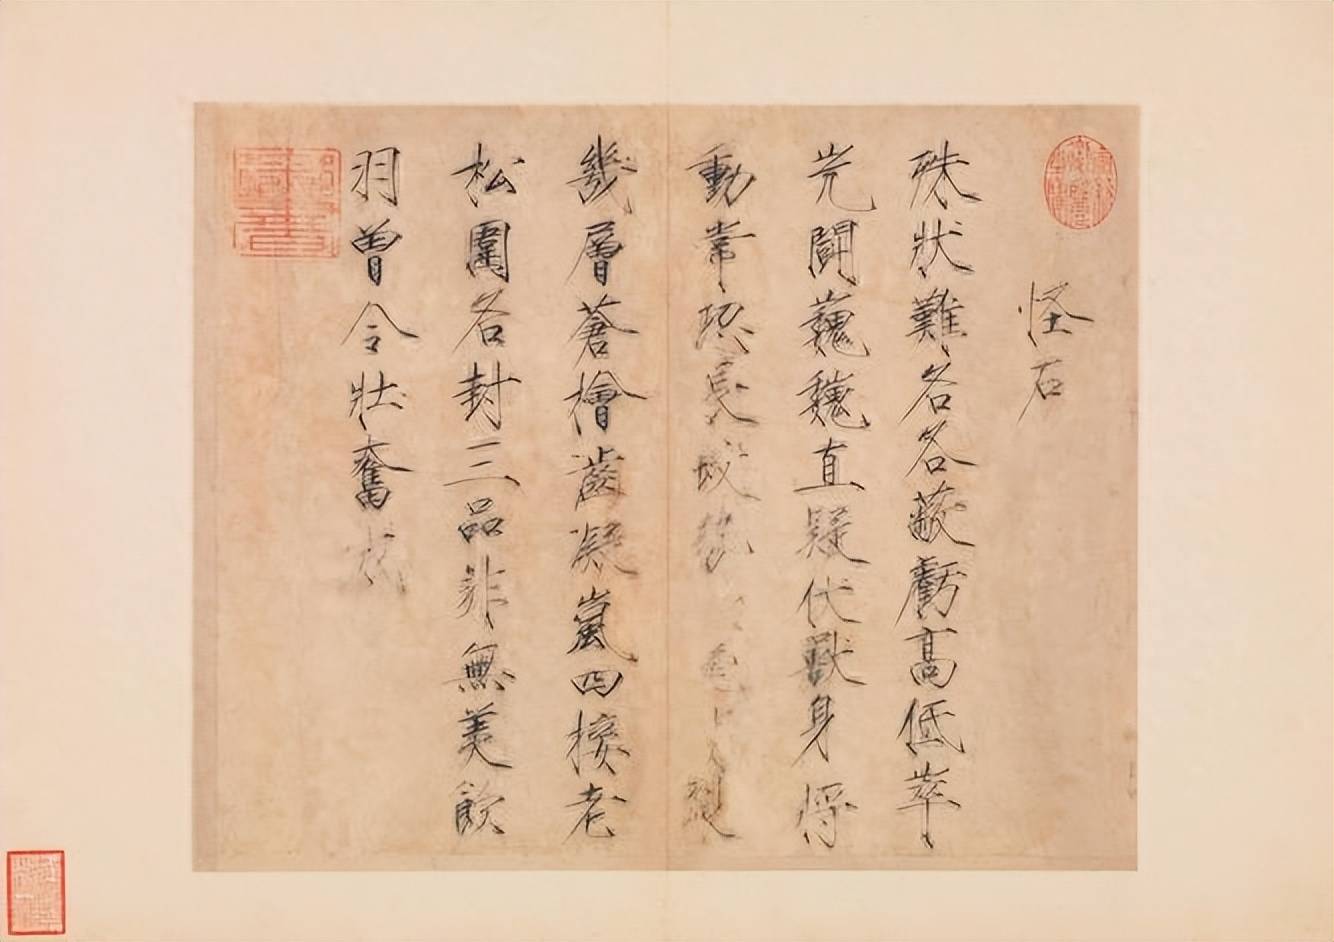 怪石
殊狀難名各蔽虧高低萃
闘巍巍直疑伏獸身將
動常恐長
幾層蒼檜凝嵐四接老
松圍各封三品非無美飲
羽曾令壯奮